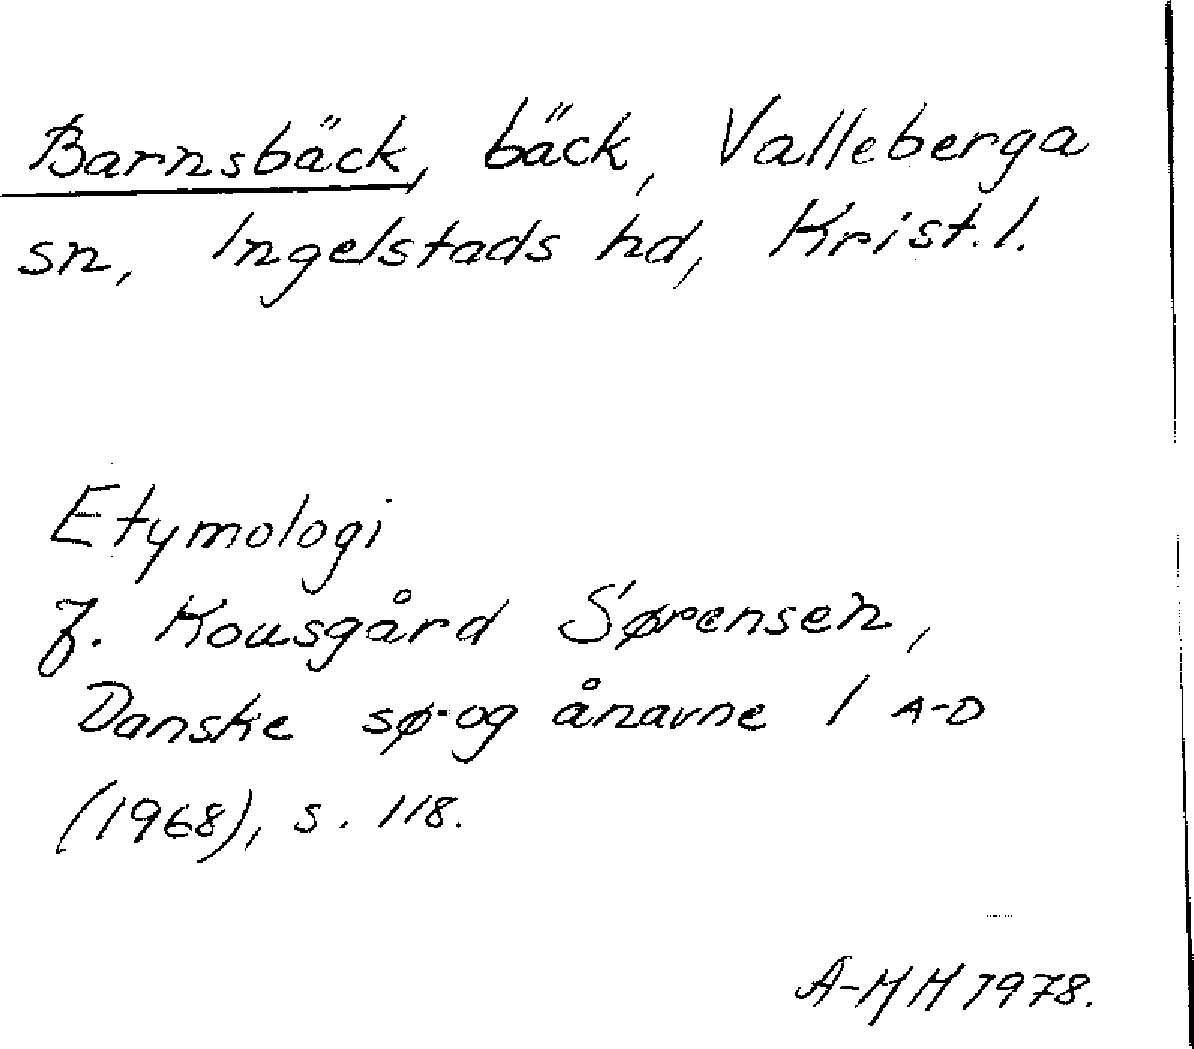 Barnsbäck, bäck, Valleberga
sn, Ingelstads hd, Krist. l.
Etymologi
J. Kousgård Sørensen,
Danske sø- og ånavne 1 A-D
(1968), s. 118.
A-MH 1978.